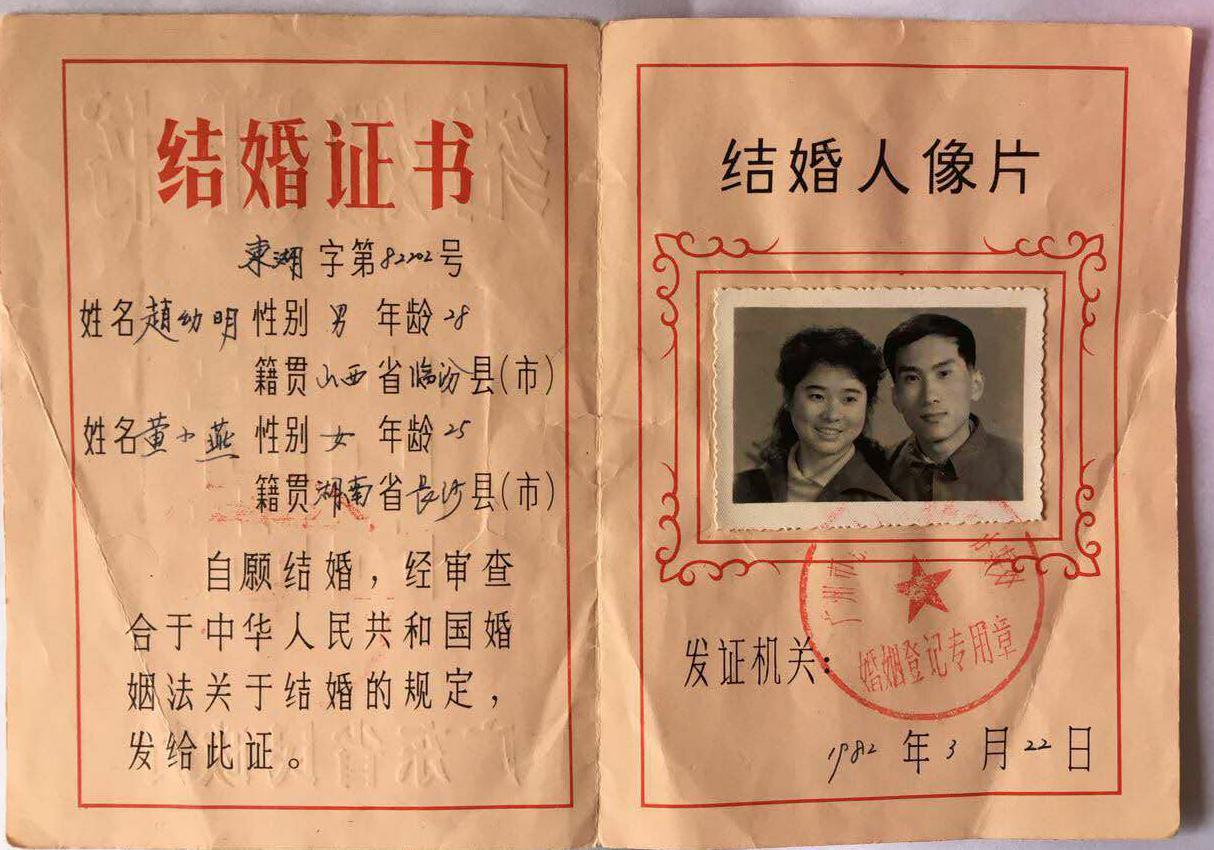 结婚证书
東湖字第82202号
姓名趙幼明 性别男 年龄28
籍贯山西省临汾县(市)
姓名董小燕 性别女 年龄25
籍贯湖南省長沙县(市)
自愿结婚,经审查
合于中华人民共和国婚
姻法关于结婚的规定,
发给此证。
结婚人像片
发证机关:
广州市
婚姻登记专用章
1982年3月22日